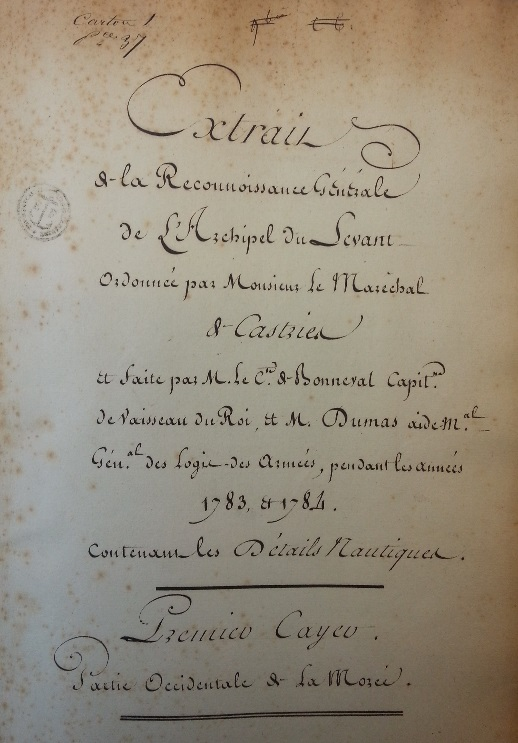 Carton 1
Extrait
de la Reconnoissance Générale
de L'Archipel du Levant
Ordonnée par Monsieur Le Maréchal
de Castries
et faite par M. Le Cte. de Bonneval Capitne.
de Vaisseau du Roi, et M. Dumas aide Mal.
Génal. des Logis des Armées, pendant les années
1783, et 1784.
Contenant les Détails Nautiques.
Premier Cayer.
Partie Occidentale de La Morée.